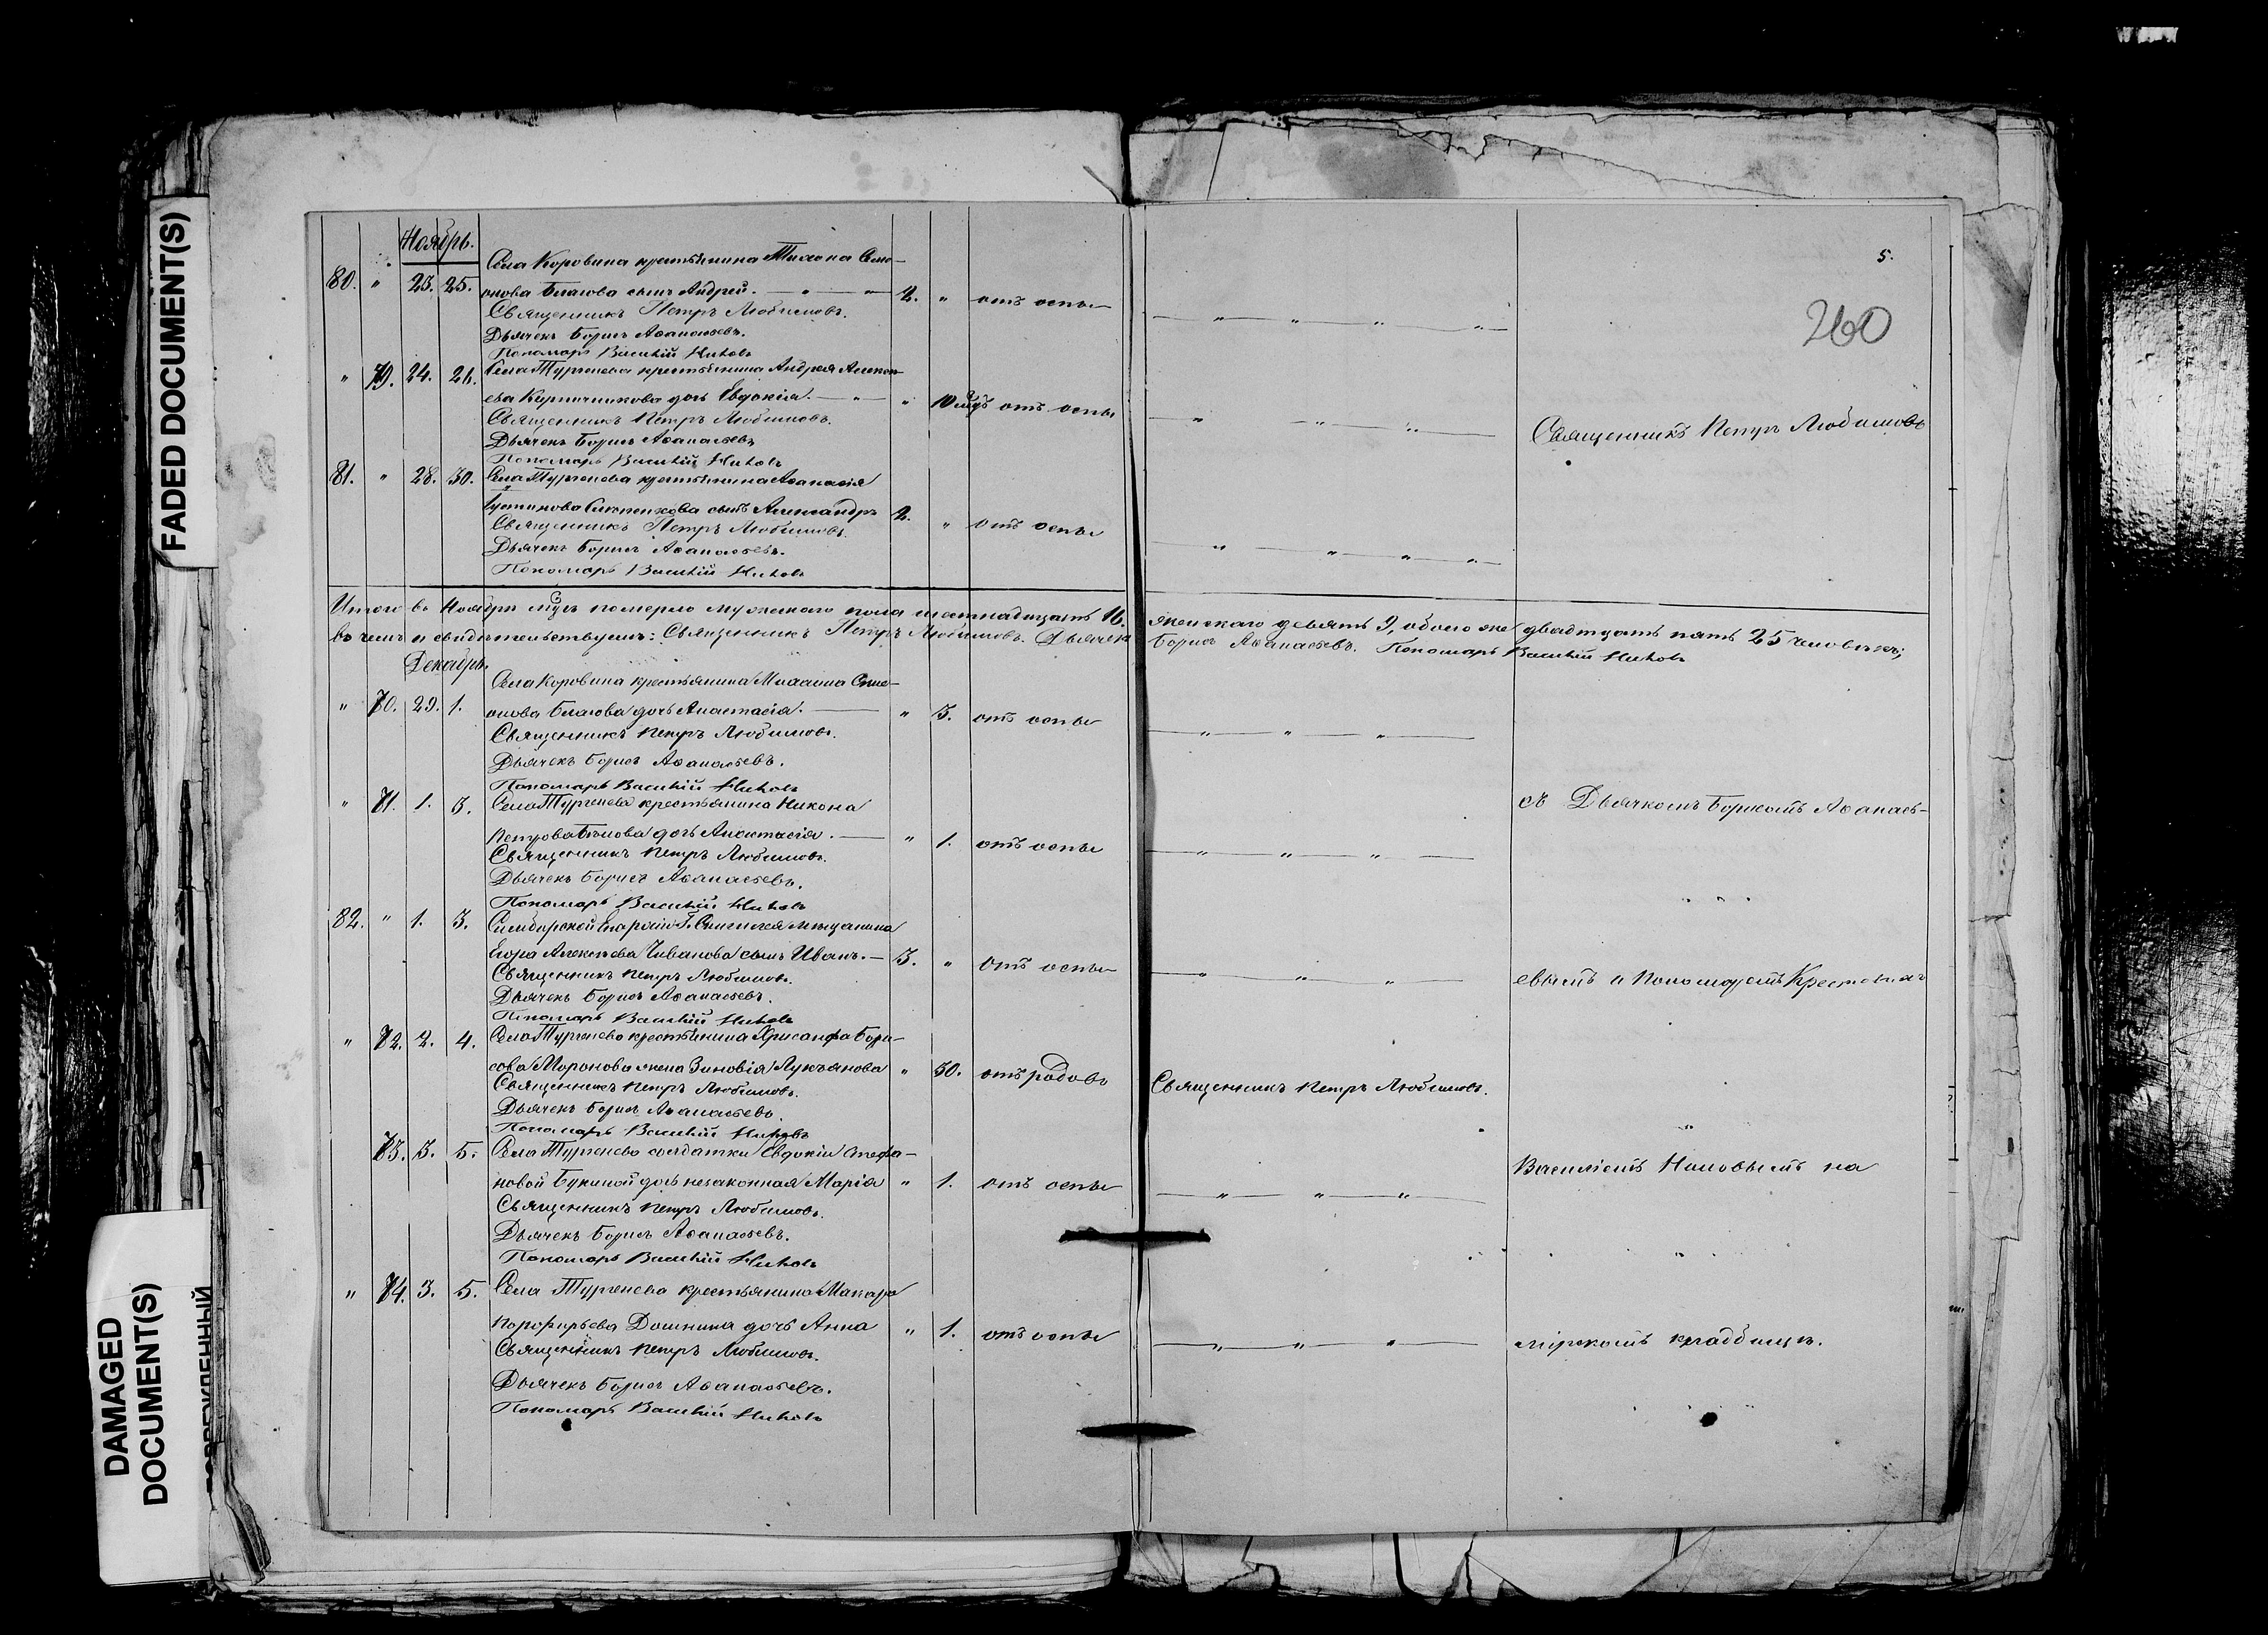 FADED DOCUMENT(S)
DAMAGED
DOCUMENT(S)
Ноябрь.
5.
260
Села Коровина крестьянина Тихона Симе-
80. " 23. 25. онова Благова сынъ Андрей. — " — " 2. " отъ оспы
Священникъ Петръ Любимовъ.
Дьячекъ Борисъ Аѳанасьевъ.
Пономарь Василій
" 79. 24. 26. Села Тургенева крестьянина Андрея Алексѣ-
ева Кирпичникова дочь Евдокія. — " — " 10 мцъ отъ оспы
Священникъ Петръ Любимовъ.
Дьячекъ Борисъ Аѳанасьевъ
Пономарь Василій
Священникъ Петръ Любимовъ
81. " 28. 30. Села Тургенева крестьянина Аѳанасія
сынъ Александръ 2. " отъ оспы
Священникъ Петръ Любимовъ.
Дьячекъ Борисъ Аѳанасьевъ.
Пономарь Василій
Итого въ Ноябрѣ мцѣ померло мужескаго пола шестнадцать 16. женскаго девять 9, обоего же двадцать пять 25 человѣкъ;
въ чемъ и свидѣтельствуемъ: Священникъ Петръ Любимовъ. Дьячекъ Борисъ Аѳанасьевъ. Пономарь Василій
Декабрь.
Села Коровина крестьянина Симе-
" 70. 29. 1. онова Благова дочь Анастасія. — " 3. отъ оспы
Священникъ Петръ Любимовъ.
Дьячекъ Борисъ Аѳанасьевъ.
Пономарь Василій
" 71. 1. 3. Села Тургенева крестьянина Никона
Петрова Бѣлова дочь Анастасія. — " 1. отъ оспы
Священникъ Петръ Любимовъ.
Дьячекъ Борисъ Аѳанасьевъ.
Пономарь Василій
съ Дьячкомъ Борисомъ Аѳанась-
82. " 1. 3. Симбирской Епархіи Г. мѣщанина
Егора Алексѣева сынъ Иванъ. — 3. " отъ оспы
Священникъ Петръ Любимовъ.
Дьячекъ Борисъ Аѳанасьевъ.
Пономарь Василій
евымъ и Пономаремъ
" 72. 2. 4. Села Тургенева крестьянина Хрисанфа Бори-
сова Миронова жена Зиновія Лукьянова " 30. отъ родовъ
Священникъ Петръ Любимовъ.
Дьячекъ Борисъ Аѳанасьевъ.
Пономарь Василій
Священникъ Петръ Любимовъ.
73. 3. 5. Села Тургенева солдатки Евдокіи Стефа-
новой Букиной дочь незаконная Марія " 1. отъ оспы
Священникъ Петръ Любимовъ.
Дьячекъ Борисъ Аѳанасьевъ.
Пономарь Василій
Василіемъ на
" 74. 3. 5. Села Тургенева крестьянина Макара
Порфирьева Дошнина дочь Анна " 1. отъ оспы
Священникъ Петръ Любимовъ.
Дьячекъ Борисъ Аѳанасьевъ.
Пономарь Василій
мірскомъ кладбищѣ.